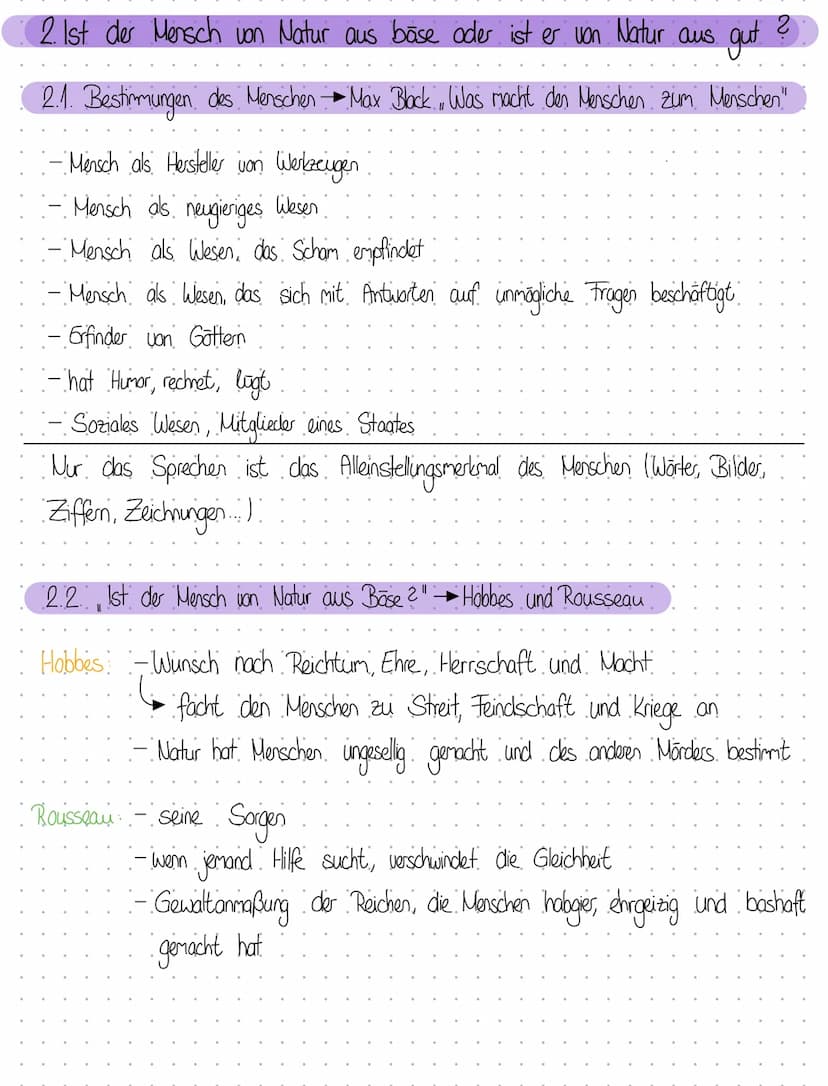 2. Ist der Mensch von Natur aus böse oder ist er von Natur aus gut?
2.1. Bestimmungen des Menschen → Max Black „Was macht den Menschen zum Menschen"
- Mensch als Hersteller von Werkzeugen
- Mensch als neugieriges Wesen
- Mensch als Wesen, das Scham empfindet
- Mensch als Wesen, das sich mit Antworten auf unmögliche Fragen beschäftigt
- Erfinder von Göttern
- hat Humor, rechnet, lügt
- Soziales Wesen, Mitglieder eines Staates
Nur das Sprechen ist das Alleinstellungsmerkmal des Menschen (Wörter, Bilder,
Ziffern, Zeichnungen...)
2.2. „Ist der Mensch von Natur aus Böse?" → Hobbes und Rousseau
Hobbes: - Wunsch nach Reichtum, Ehre, Herrschaft und Macht
↳ facht den Menschen zu Streit, Feindschaft und Kriege an
- Natur hat Menschen ungesellig gemacht und des anderen Mörders bestimmt
Rousseau: - seine Sorgen
- wenn jemand Hilfe sucht, verschwindet die Gleichheit
- Gewaltanmaßung der Reichen, die Menschen habgier, ehrgeizig und boshaft
gemacht hat